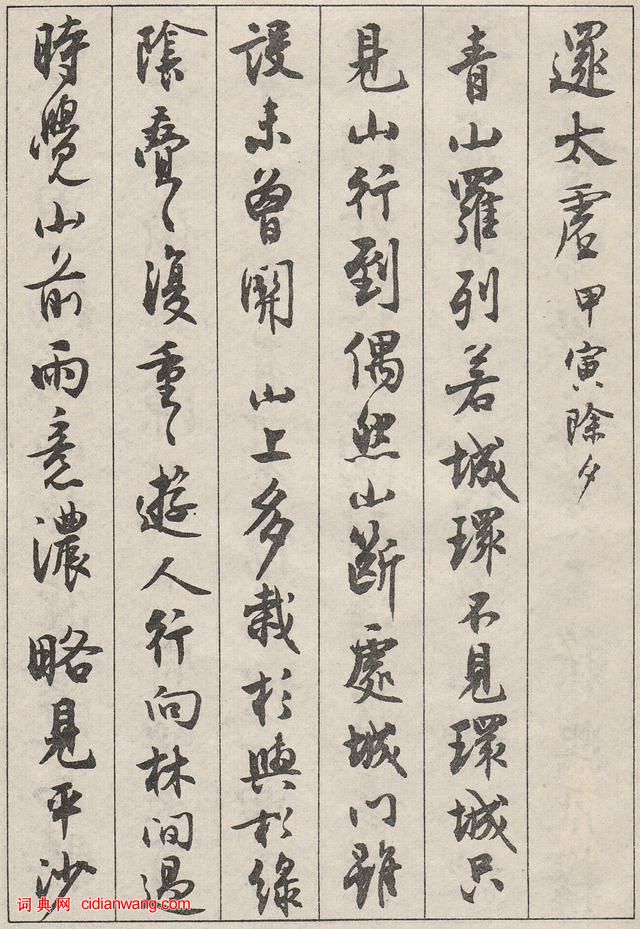 還太虛 甲寅除夕
青山羅列若城環不見環城只
見山行到偶然山斷處城門雖
設未曾開 山上多栽杉與松綠
陰疊〻復重〻遊人行向林間過
時覺山前雨意濃 略見平沙
词典网 cidianwang.com